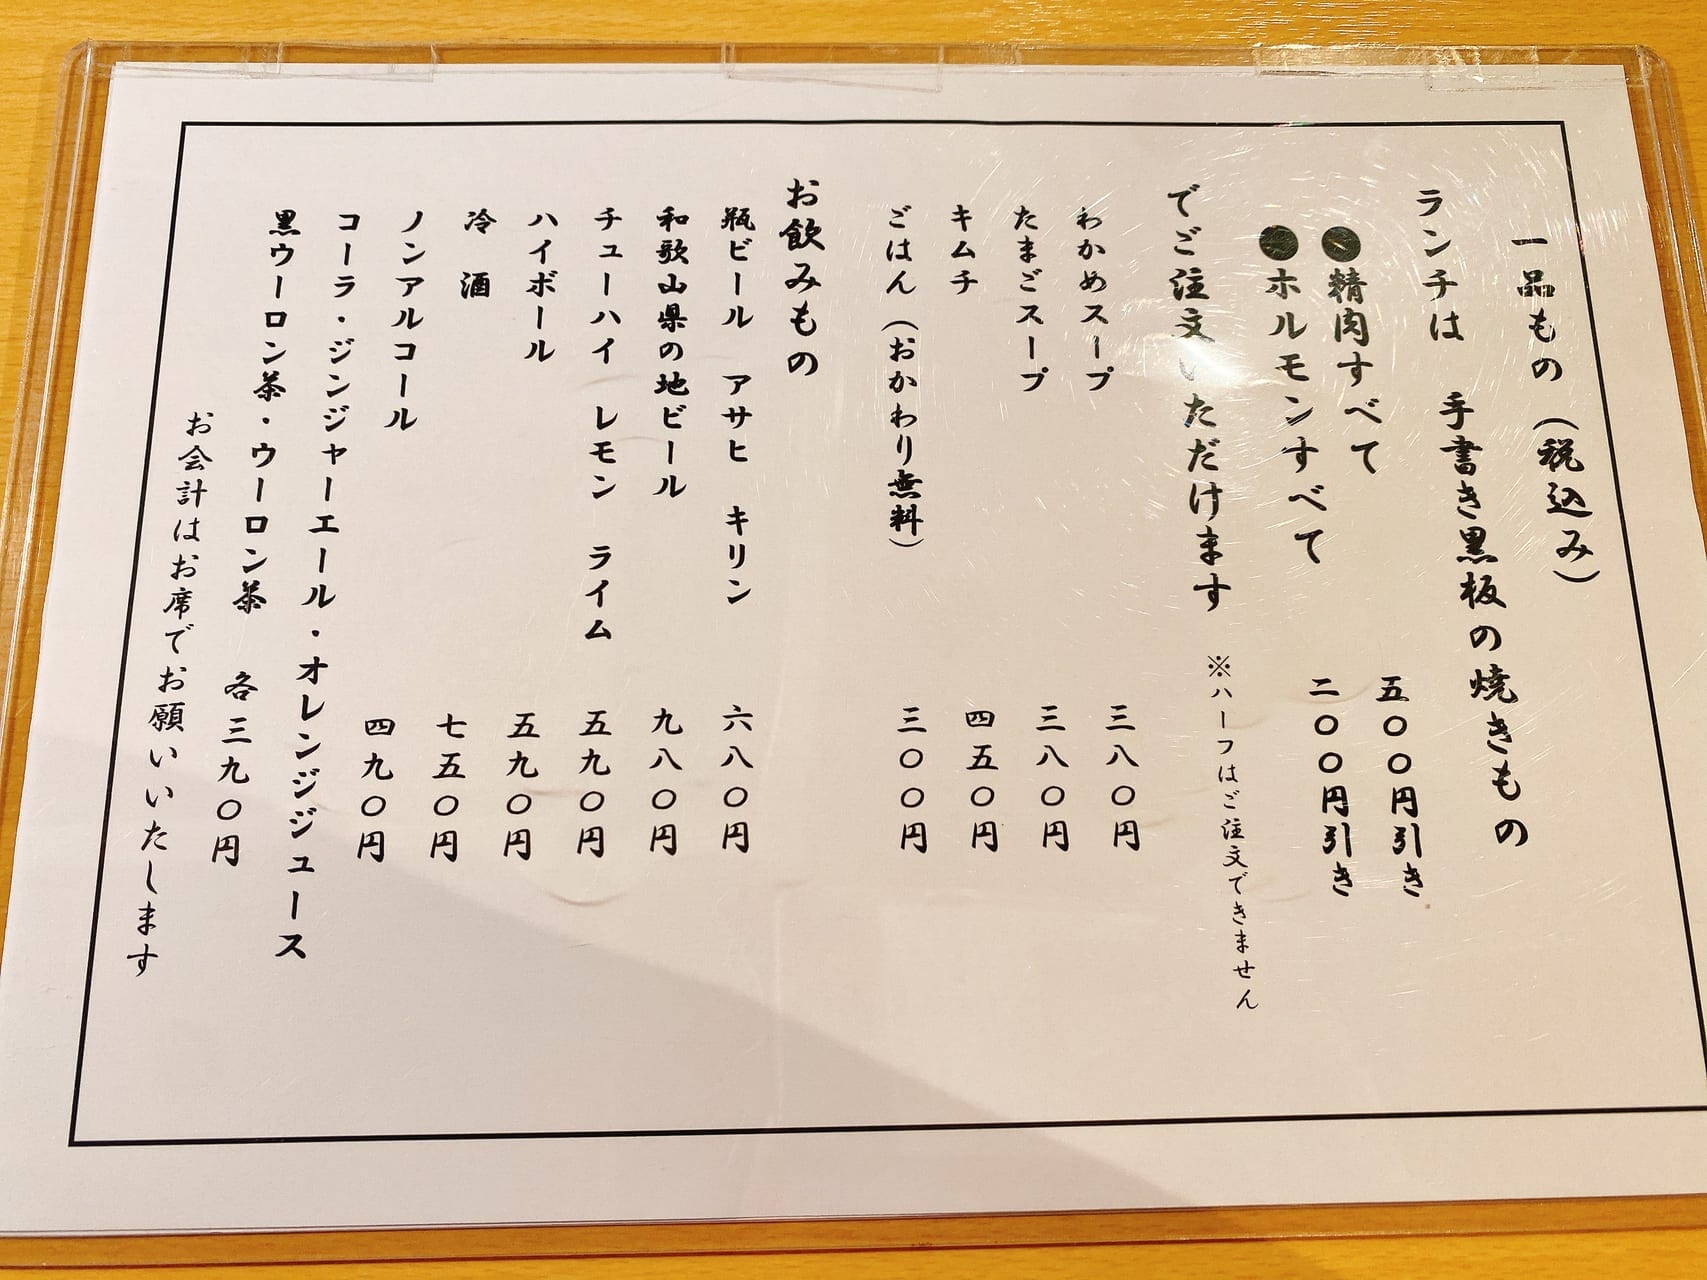 一品もの（税込み）
ランチは　手書き黒板の焼きもの
●精肉すべて　五〇〇円引き
●ホルモンすべて　二〇〇円引き
でご注文いただけます　※ハーフはご注文できません
わかめスープ　三八〇円
たまごスープ　三八〇円
キムチ　四五〇円
ごはん（おかわり無料）　三〇〇円
お飲みもの
瓶ビール　アサヒ　キリン　六八〇円
和歌山県の地ビール　九八〇円
チューハイ　レモン　ライム　五九〇円
ハイボール　五九〇円
冷　酒　七五〇円
ノンアルコール　四九〇円
コーラ・ジンジャーエール・オレンジジュース
黒ウーロン茶・ウーロン茶　各三九〇円
お会計はお席でお願いいたします